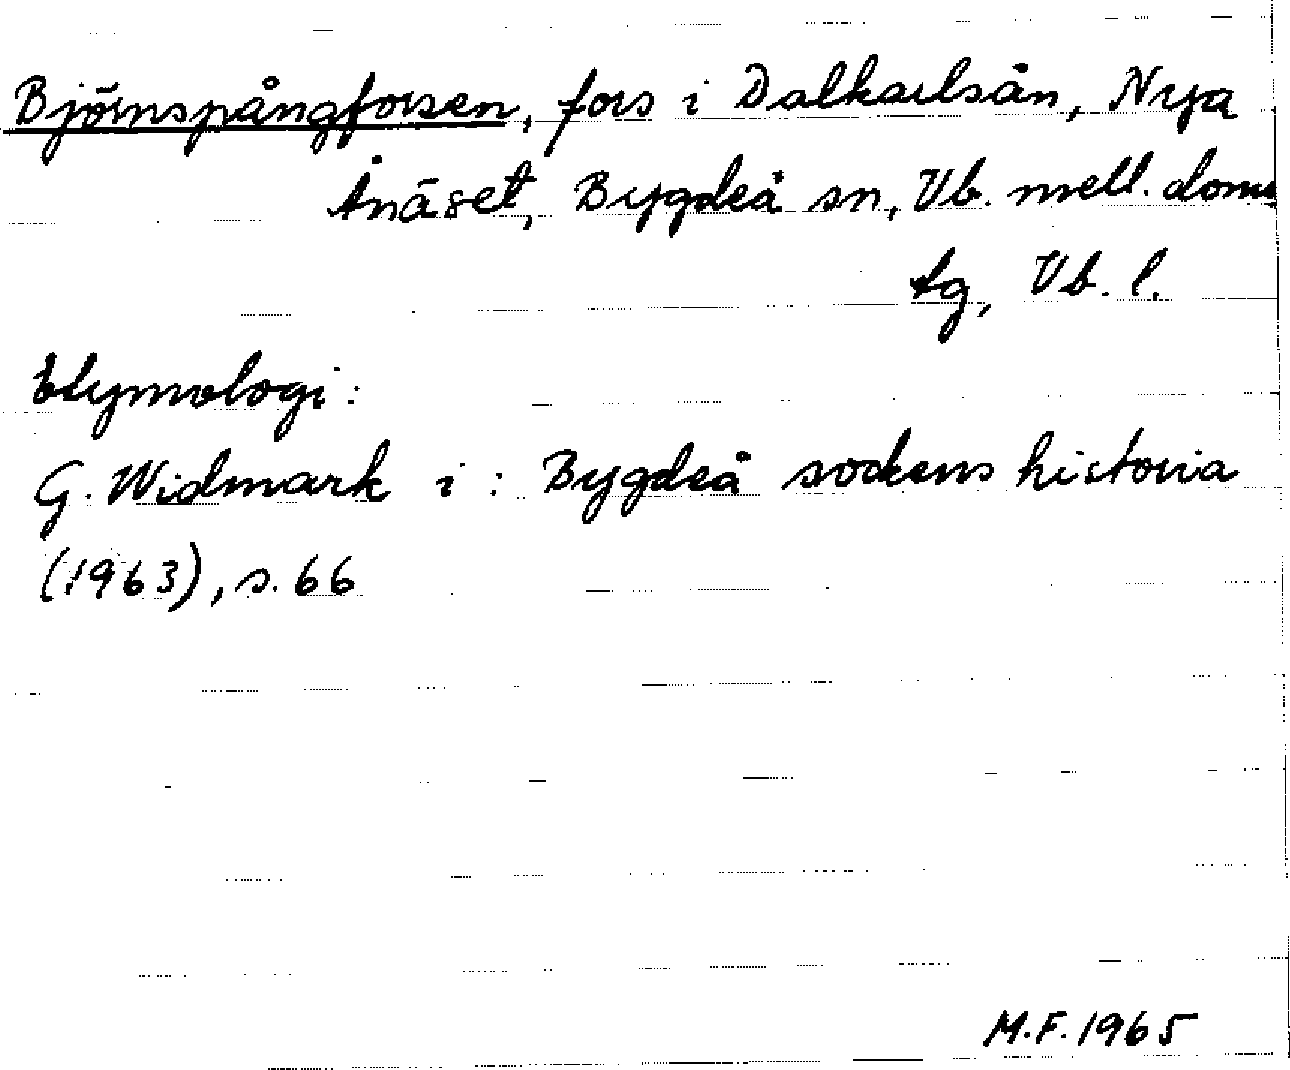 Björnspångforsen, fors i Dalkarlsån, Nya
Ånäset, Bygdeå sn, Vb. mell. doms
tg, Vb. l.
Etymologi:
G. Widmark i: Bygdeå sockens historia
(1963), s. 66
M.F. 1965